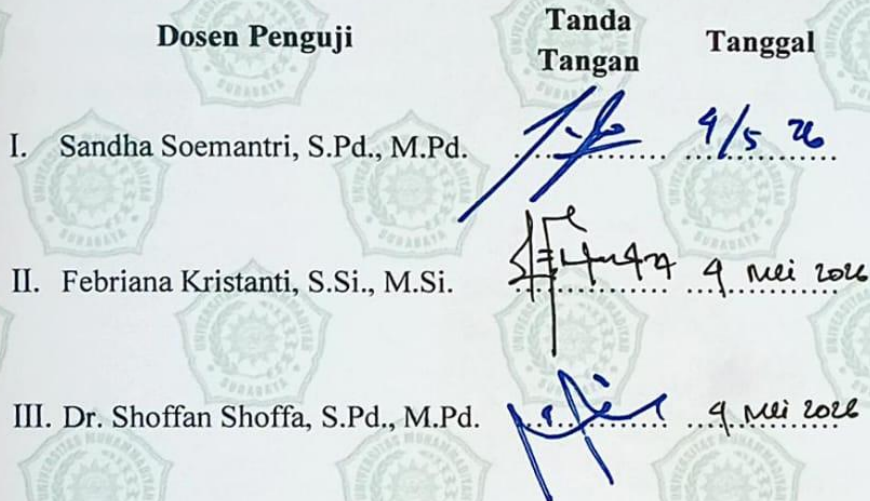 Dosen Penguji Tanda Tangan Tanggal
I. Sandha Soemantri, S.Pd., M.Pd. .............. 4/5 26
II. Febriana Kristanti, S.Si., M.Si. .............. 4 Mei 2026
III. Dr. Shoffan Shoffa, S.Pd., M.Pd. .............. 4 Mei 2026